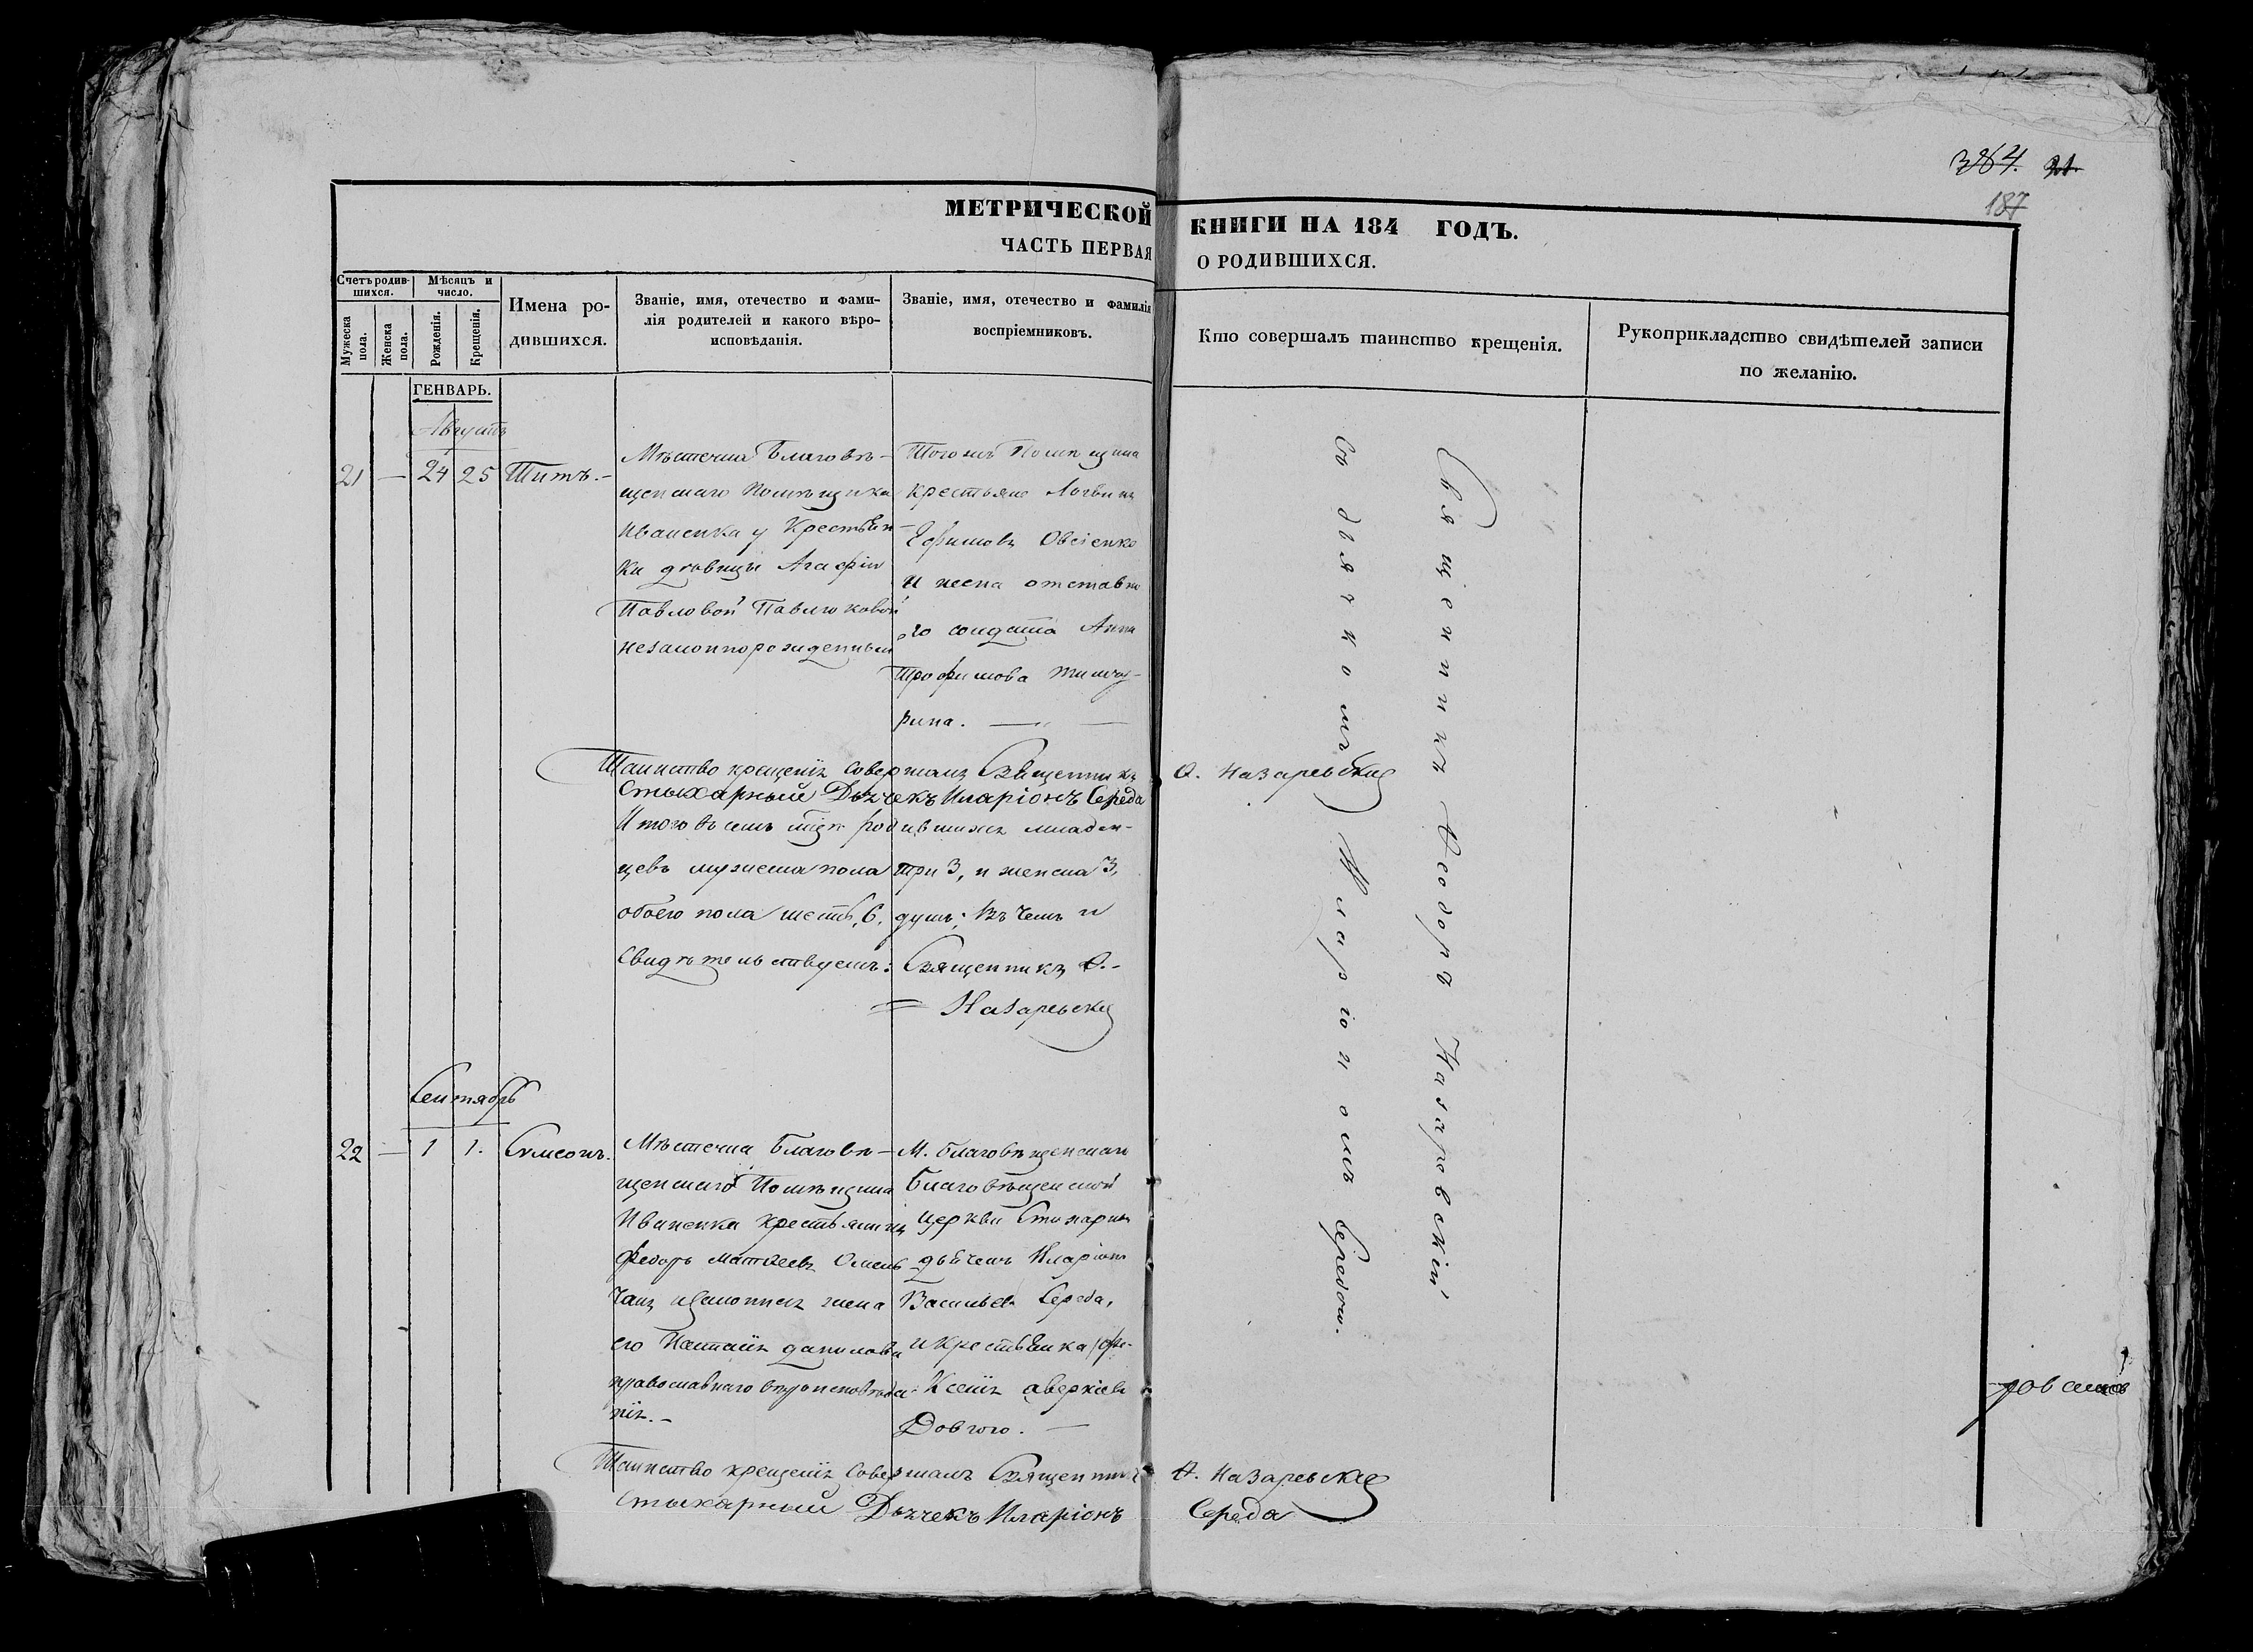 384. 21.
187
МЕТРИЧЕСКОЙ КНИГИ НА 184 ГОДЪ.
ЧАСТЬ ПЕРВАЯ О РОДИВШИХСЯ.
Счетъ родившихся.
Мѣсяцъ и число.
Мужеска пола.
Женска пола.
Рожденія.
Крещенія.
Имена родившихся.
Званіе, имя, отечество и фами-
лія родителей и какого вѣро-
исповѣданія.
Званіе, имя, отечество и фамилія
воспріемниковъ.
Кто совершалъ таинство крещенія.
Рукоприкладство свидѣтелей записи
по желанію.
ГЕНВАРЬ.
Августъ
21 — 24 25 Титъ.-
Мѣстечка Благовѣ-
щенскаго Помѣщика
Иваненка у Крестьян-
ки вдовицы Агафіи
Павловой Павлюковой
незаконнорожденный
Тогожъ Помѣщика
крестьяне Логвинъ
Ефимовъ Овсіенко
и жена отставно
го солдата Анна
Трофимова
рина. —
Таинство крещенія совершалъ Священникъ Ѳ. Назаревскій
Стыхарный Дьячекъ Иларіонъ Середа
Итого въ семъ м-цѣ родившихся младен-
цевъ мужеска пола три 3, и женска 3,
обоего пола шесть, 6, душъ; въ чемъ и
Свидѣтельствуемъ: Священникъ Ѳ.-
= Назаревскій
Священникъ Ѳеодоръ Назаревскій
съ дьячкомъ Иларіономъ Середою.
Сентябрь
22 — 1 1. Сѵмеонъ.
Мѣстечка Благовѣ-
щенскаго Помѣщика
Иваненка крестьянинъ
Федоръ Матвеевъ
законная жена
его Настасія Данилова
православнаго вѣроисповѣда-
нія.-
М. Благовѣщенскаго
Благовѣщенской
Церкви Стихарный
дьячекъ Иларіонъ
Васильевъ Середа,
и крестьянка
Ксенія Аверкіева
Довгого. —
Таинство крещенія совершалъ Священникъ Ѳ. Назаревскій
Стыхарный Дьячекъ Иларіонъ Середа